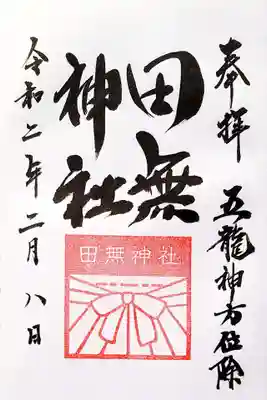 奉拝
五龍神方位除
田無
神社
田無神社
令和二年二月八日